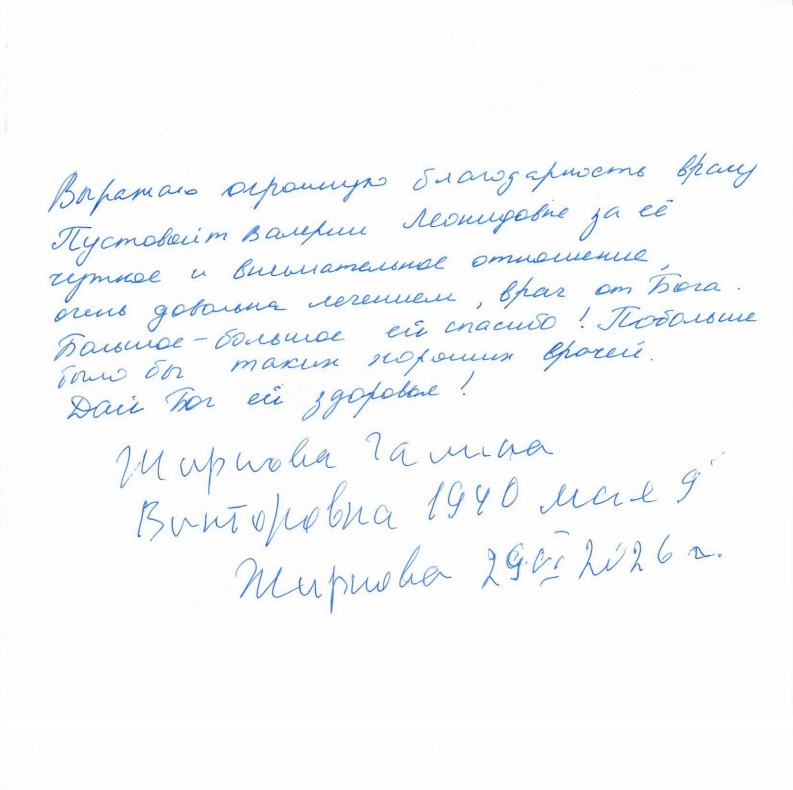 Выражаю огромную благодарность врачу
Пустовойт Валерии Леонидовне за её
чуткое и внимательное отношение,
очень довольна лечением, врач от Бога.
Большое-большое ей спасибо! Побольше
было бы таких хороших врачей.
Дай Бог ей здоровья!
Жирнова Галина
Викторовна 1940 мая 9
Жирнова 29 VI 2026 г.